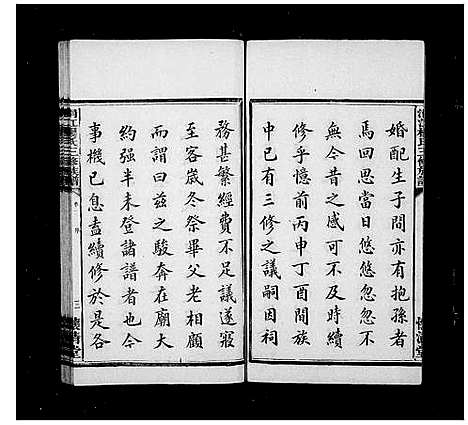 婚配生子間亦有抱孫者
焉回思當日悠悠忽忽不
無今昔之感可不及時續
修乎憶前丙申丁酉間族
中已有三修之議嗣因祠
務甚繁經費不足議遂寢
至客歲冬祭畢父老相顧
而謂曰茲之駿奔在廟大
約强半未登諸譜者也今
事機已息盍續修於是各
三